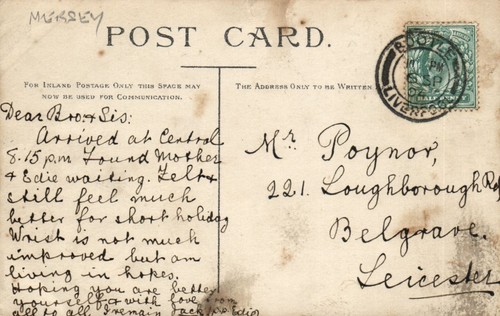 MERSEY
POST CARD.
FOR INLAND POSTAGE ONLY THIS SPACE MAY
NOW BE USED FOR COMMUNICATION.
THE ADDRESS ONLY TO BE WRITTEN
BOOTLE
LIVERPOOL
HALFPENNY
Dear Bro & Sis:
Arrived at Central
8.15 p.m Found Mother
& Edie waiting. Felt &
still feel much
better for short holiday
Wrist is not much
improved but am
living in hopes.
Hoping you are better
yourself & with love from
all to all I remain Jack
Edie
Mr Poynor,
221. Loughborough Rd
Belgrave.
Leicester